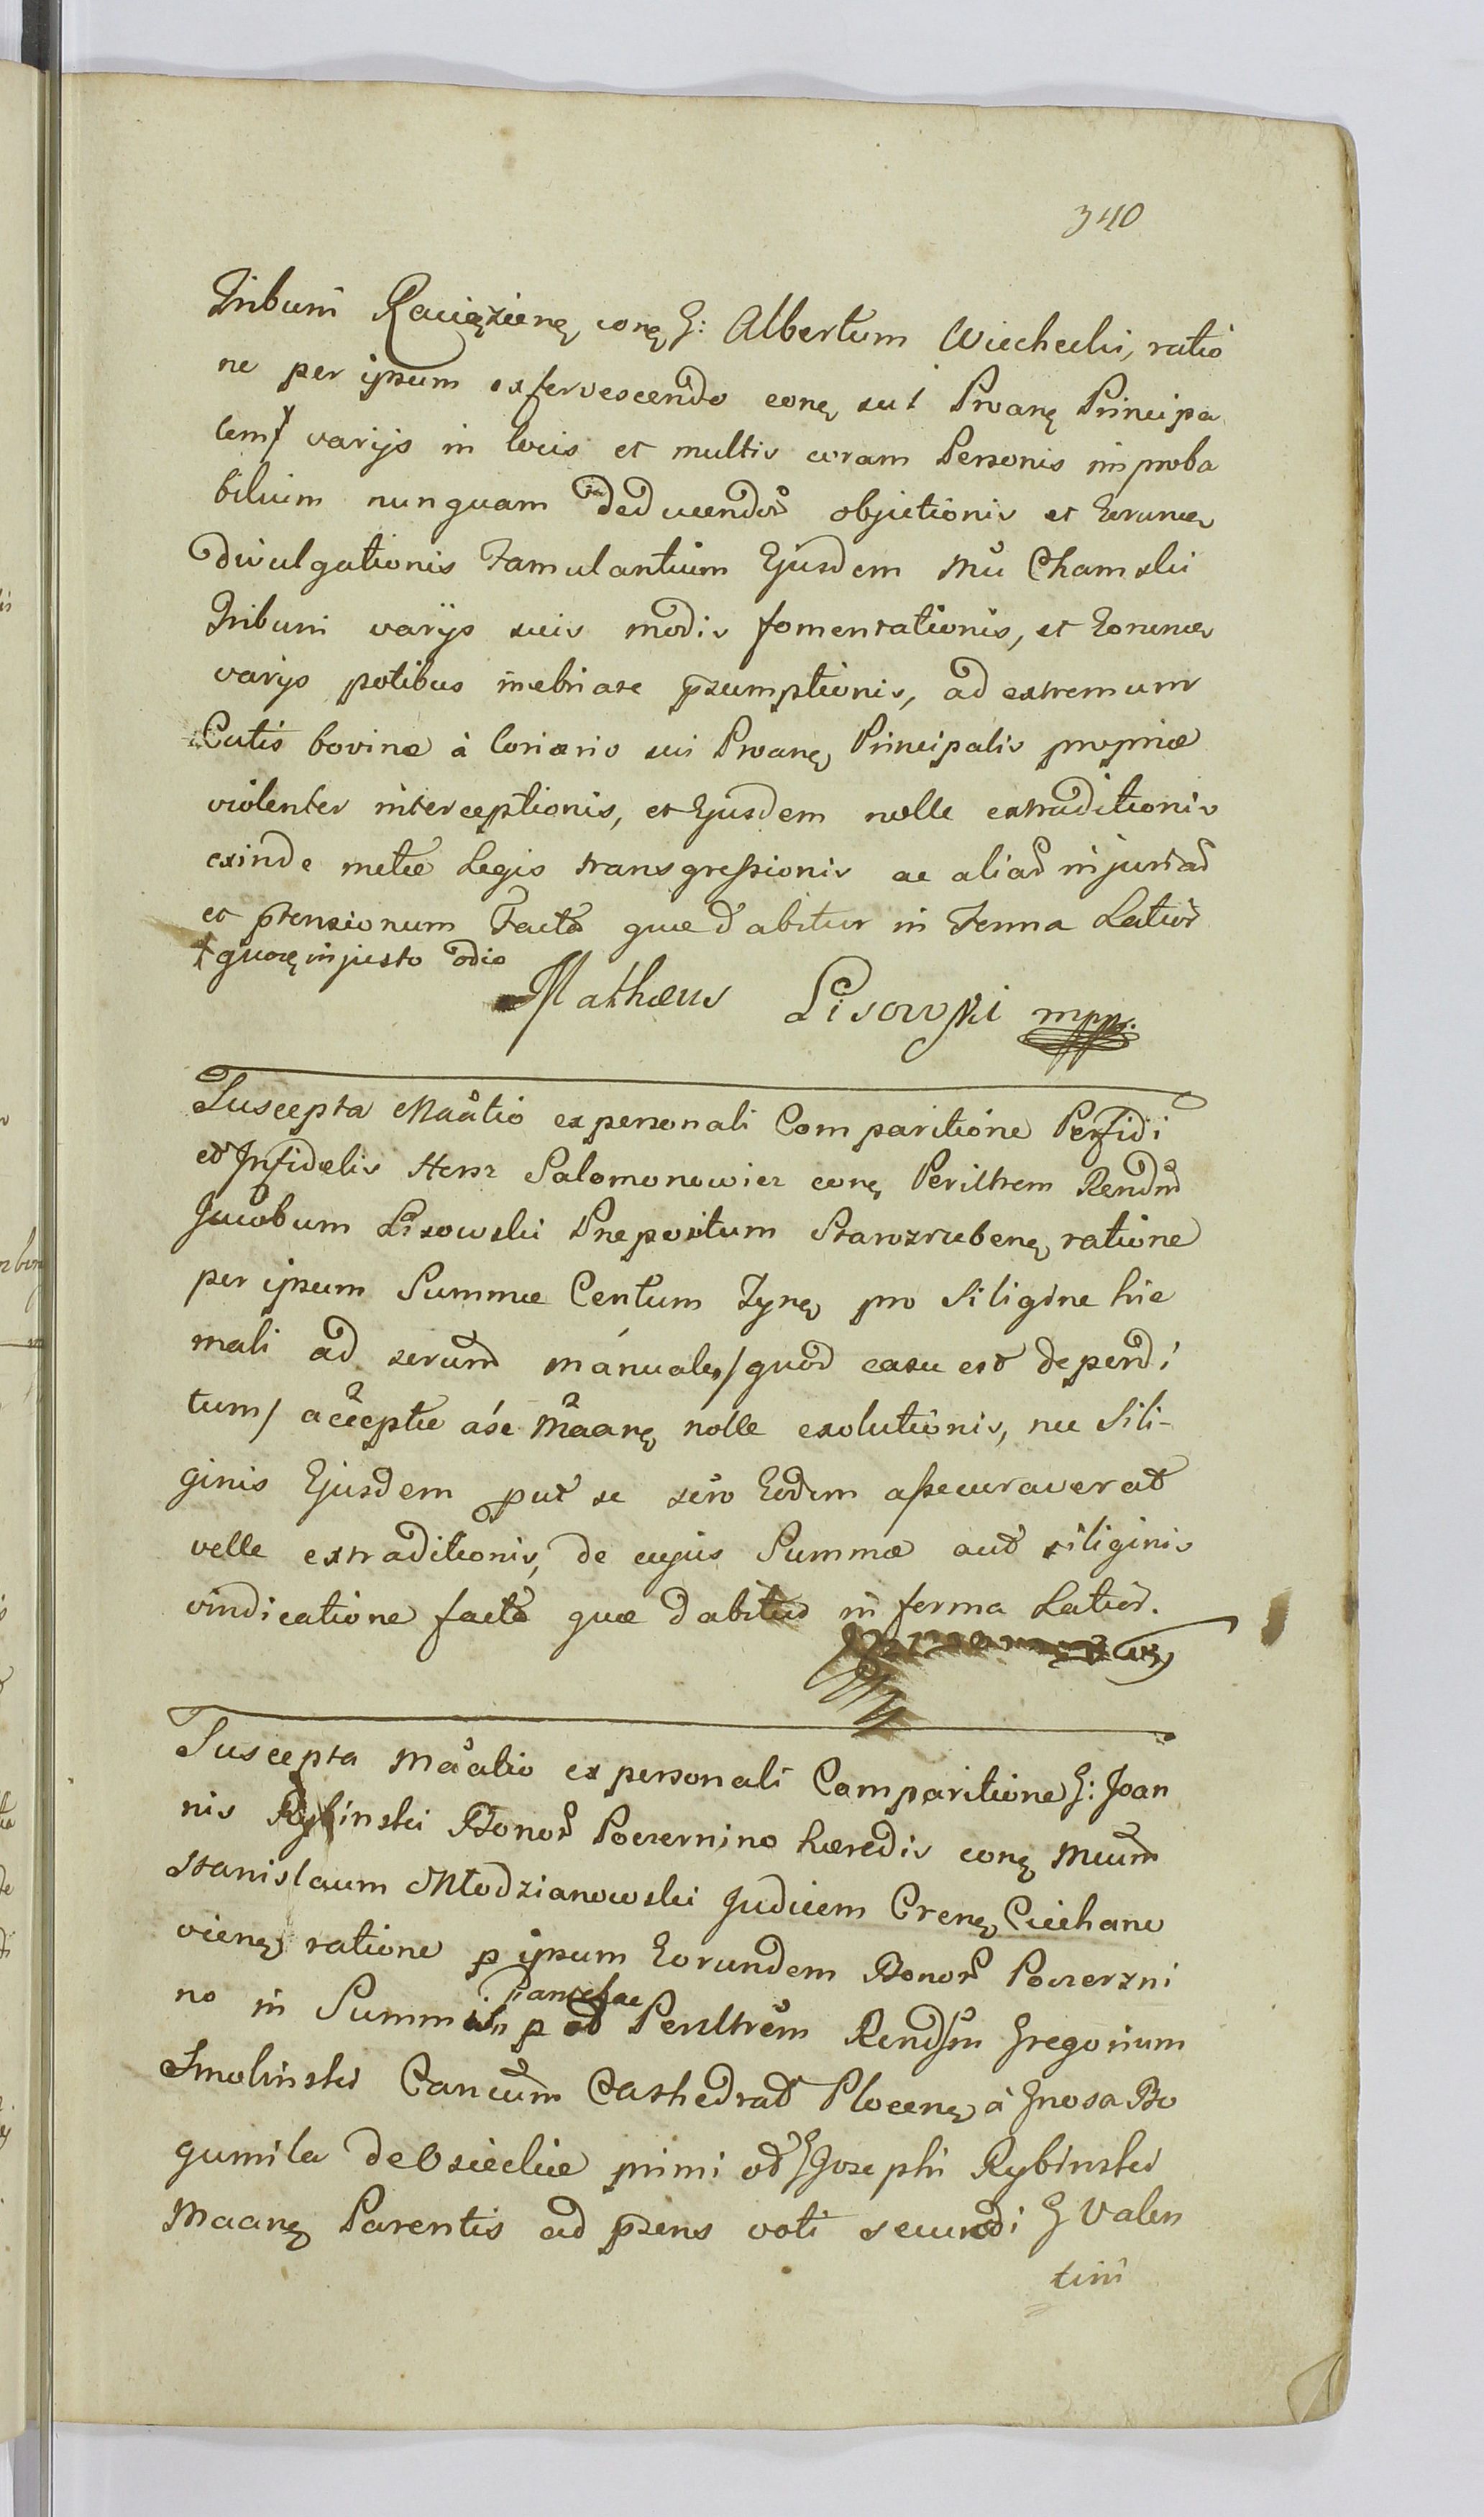 340
Tribuni Raciąziens conς G: Albertum Wiechecki, ratio
ne per ipsum exfervescendo conς sui Proanς Principa
lem ‡ varijs in locis et multis coram Personis improba
bilium nunquam deducendor objectionis et Eorunde
divulgationis Famulantium Ejusdem Mci Chamski
Tribuni varijs suis modis fomentationis, et Eorunde
varijs potibus inebriare psumptionis, ad extremum
Cutis bovinæ à Coriario sui Proanς Principalis propriæ
violenter interceptionis, et Ejusdem nolle extraditionis
exinde metæ Legis transgressionis ac aliar injuriar
et ptensionum Facta quæ dabitur in Ferma Latior
‡ quoς injusto odio
Mathæus Lisowski mpp.
Suscepta Maatio ex personali Comparitione Perfidi
et Infidelis Hersz Salomonowicz conς Perillrem Rendm
Jacobum Lisowski Prepositum Starozrebenς ratione
per ipsum Summæ Centum Tynς pro Siligine hie
mali ad scrum manuale /quod casu est deperdi
tum/ acceptæ áse Maanς nolle exolutionis, nec Sili-
ginis Ejusdem put se scro Eodem assecuraverat
velle extraditionis, de cujus Summæ aut siliginis
vindicatione facta quæ dabitur in ferma Latior.
Suscepta Maatio ex personali Comparitione G: Joan
nis Rybinski Bonor Poczernino hæredis conς Mcum
Stanislaum Młodzianowski Judicem Crenς Ciechano
vienς ratione p ipsum Eorundem Bonor Poczerzni
no in Summa p ad Perillrem Rendssm Gregorium
Smolinski Cancum Cathedral Plocenς à Gnosa Bo
gumila de Osieckie primi G Josephi Rybinski
Maanς Parentis ad psens voti secundi G Valen
tini